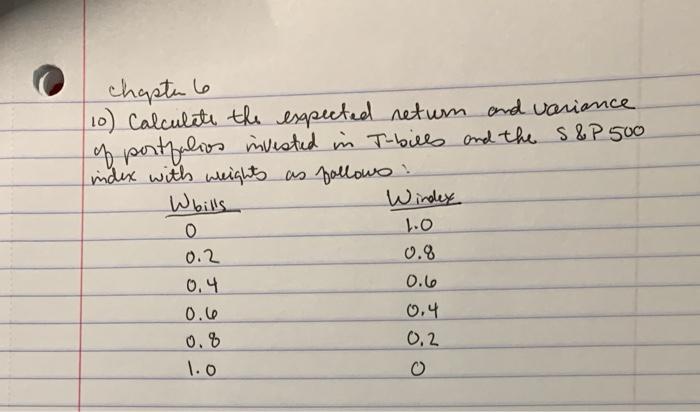 chapter 6
10) Calculate the expected return and variance
of portfolios invested in T-bills and the S&P 500
index with weights as follows:
Wbills Windex
0 1.0
0.2 0.8
0.4 0.6
0.6 0.4
0.8 0.2
1.0 0